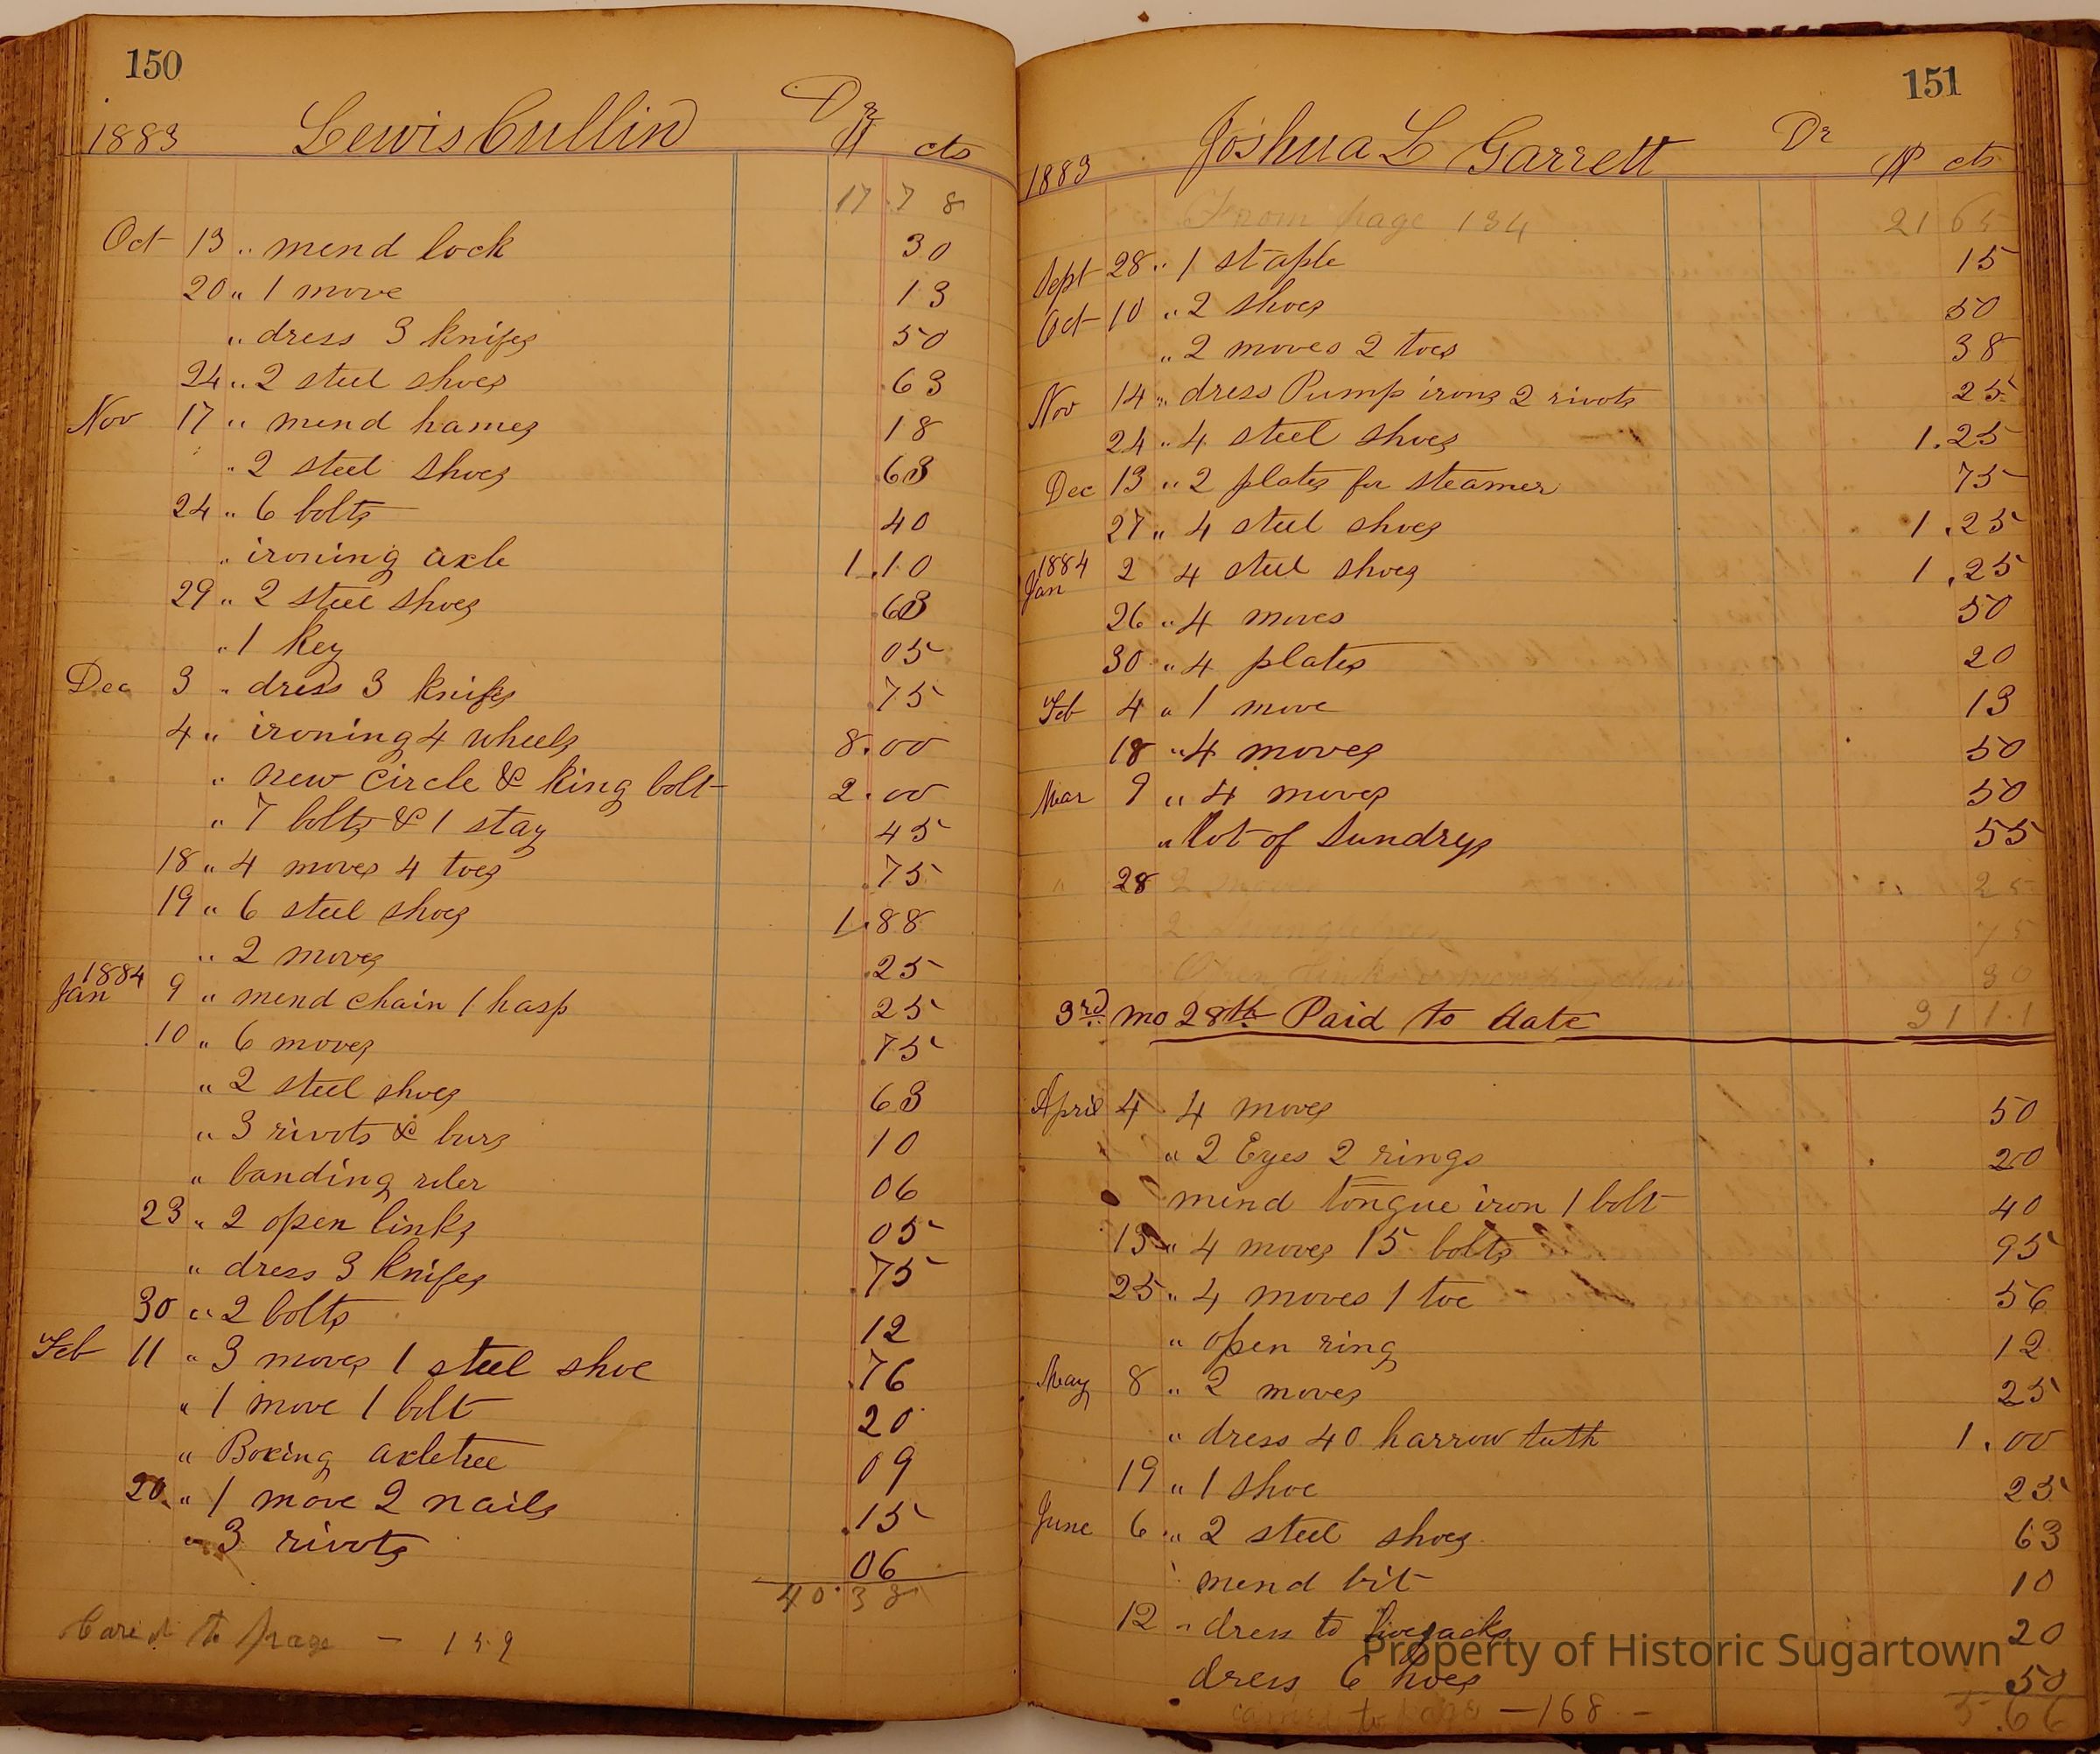 150
1883 Lewis Cullin Dr $ cts
17 78
Oct 13 " mend lock 30
20 " 1 move 13
" dress 3 knifes 50
24 " 2 steel shoes 63
Nov 17 " mend hames 18
" 2 steel shoes 63
24 " 6 bolts 40
" ironing axle 1.10
29 " 2 steel shoes 63
" 1 key 05
Dec 3 " dress 3 knifes 75
4 " ironing 4 wheels 8.00
" new circle & king bolt 2.00
" 7 bolts & 1 stay 45
18 " 4 moves 4 toes .75
19 " 6 steel shoes 1.88
" 2 moves .25
1884
Jan 9 " mend chain 1 hasp 25
10 " 6 moves .75
" 2 steel shoes 63
" 3 rivots & burs 10
" banding roler 06
23 " 2 open links 05
" dress 3 knifes .75
30 " 2 bolts 12
Feb 11 " 3 moves 1 steel shoe .76
" 1 move 1 bolt 20
" Boxing axletree 09
20 " 1 move 2 nails .15
" 3 rivots 06
40.38
Caried to page - 159
151
1883 Joshua L Garrett Dr $ cts
From page 134 21 65
Sept 28 " 1 staple 15
Oct 10 " 2 shoes 50
" 2 moves 2 toes 38
Nov 14 " dress Pump irons 2 rivots 25
24 " 4 steel shoes 1.25
Dec 13 " 2 plates for steamer 75
27 " 4 steel shoes 1.25
1884
Jan 2 4 steel shoes 1.25
26 " 4 moves 50
30 " 4 plates 20
Feb 4 " 1 move 13
18 " 4 moves 50
Mar 9 " 4 moves 50
" lot of Sundrys 55
" 28 2 moves 25
2 75
Open links 30
3rd mo 28th Paid to date 31 11
April 4 4 moves 50
" 2 Eyes 2 rings 20
mend tongue iron 1 bolt 40
13 " 4 moves 15 bolts 95
25 " 4 moves 1 toe 56
" open ring 12
May 8 " 2 moves 25
" dress 40 harrow tuth 1.00
19 " 1 shoe 25
June 6 " 2 steel shoes 63
mend bit 10
12 " dress to 20
dress 6 hoes 50
carried to page - 168 - 5.66
Property of Historic Sugartown